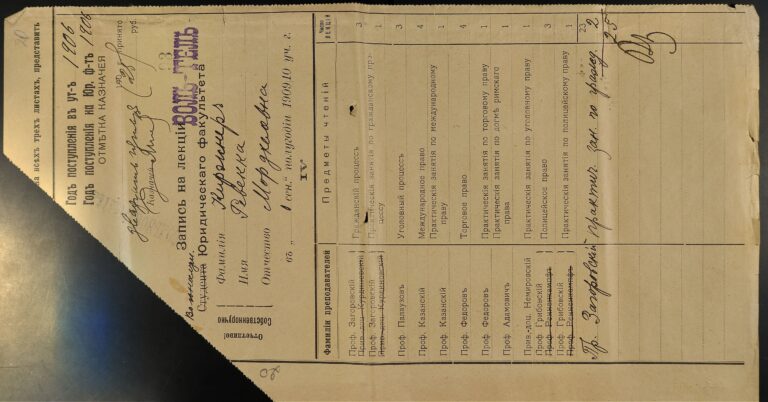 на всѣхъ трехъ листахъ, представить
Годъ поступленія въ ун-тъ 1906
Годъ поступленія на Юр. ф-тъ 1906
ОТМѢТКА КАЗНАЧЕЯ
принято
руб.
ВОЛЬ-ТЕЛЬ
Запись на лекціи
Студента Юридическаго факультета
Фамилія Киржнеръ
Имя Ревекка
Отчество Мордховна
въ „ I сен.“ полугодіи 1909/10 уч. г.
IV
Отчетливо!
Собственноручно
Фамиліи преподавателей Предметы чтеній Число лекцій
Проф. Загоровскій Гражданскій процессъ 3
Проф. Загоровскій Практическія занятія по гражданскому процессу 1
Проф. Палаузовъ Уголовный процессъ 3
Проф. Казанскій Международное право 4
Проф. Казанскій Практическія занятія по международному праву 1
Проф. Федоровъ Торговое право 4
Проф. Федоровъ Практическія занятія по торговому праву 1
Проф. Адамовичъ Практическія занятія по догмѣ римскаго права 1
Прив.-доц. Немировскій Практическія занятія по уголовному праву 1
Проф. Грибовскій Полицейское право 3
Проф. Грибовскій Практическія занятія по полицейскому праву 1
23
Пр. Загоровскій практич. зан. по гражд. 2
25